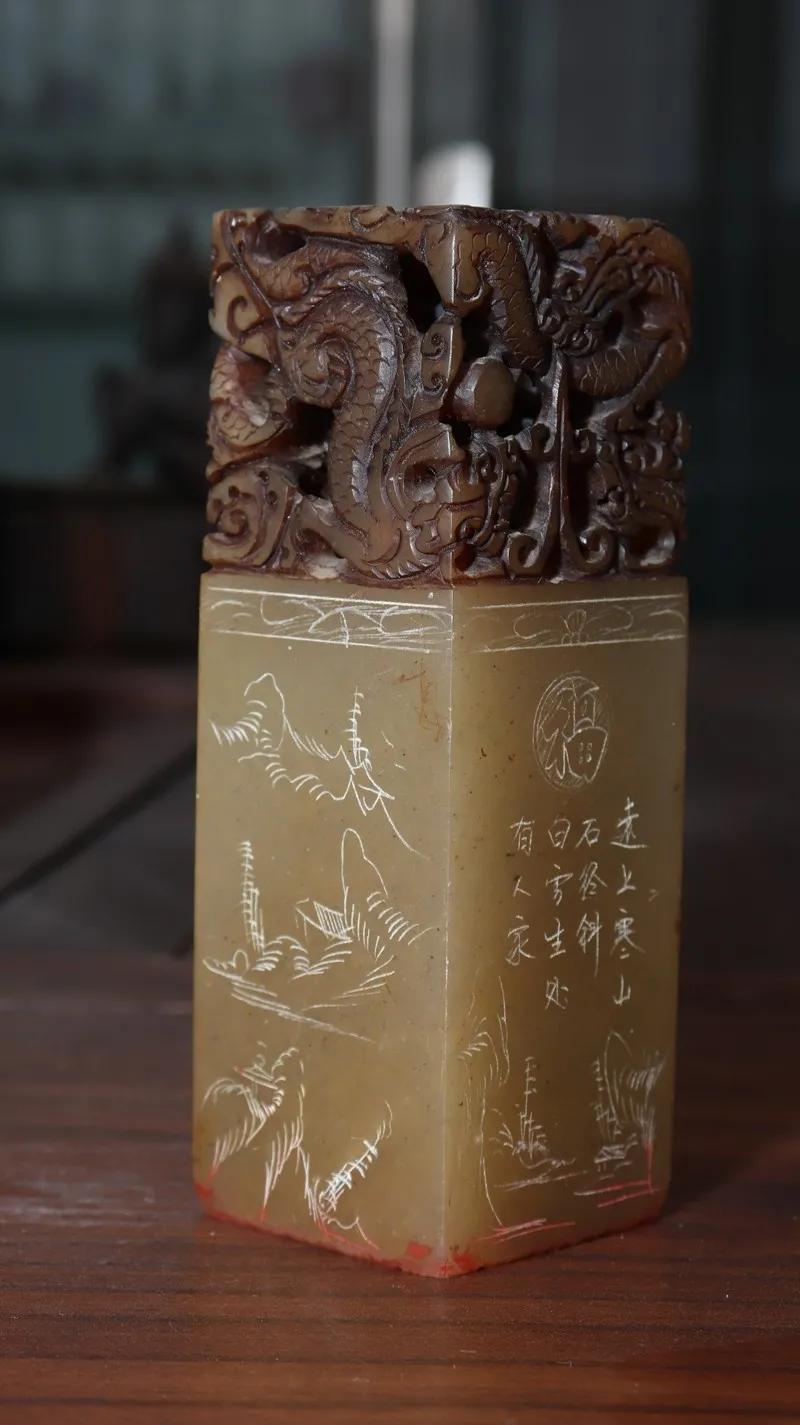 福
遠上寒山
石径斜
白雲生处
有人家